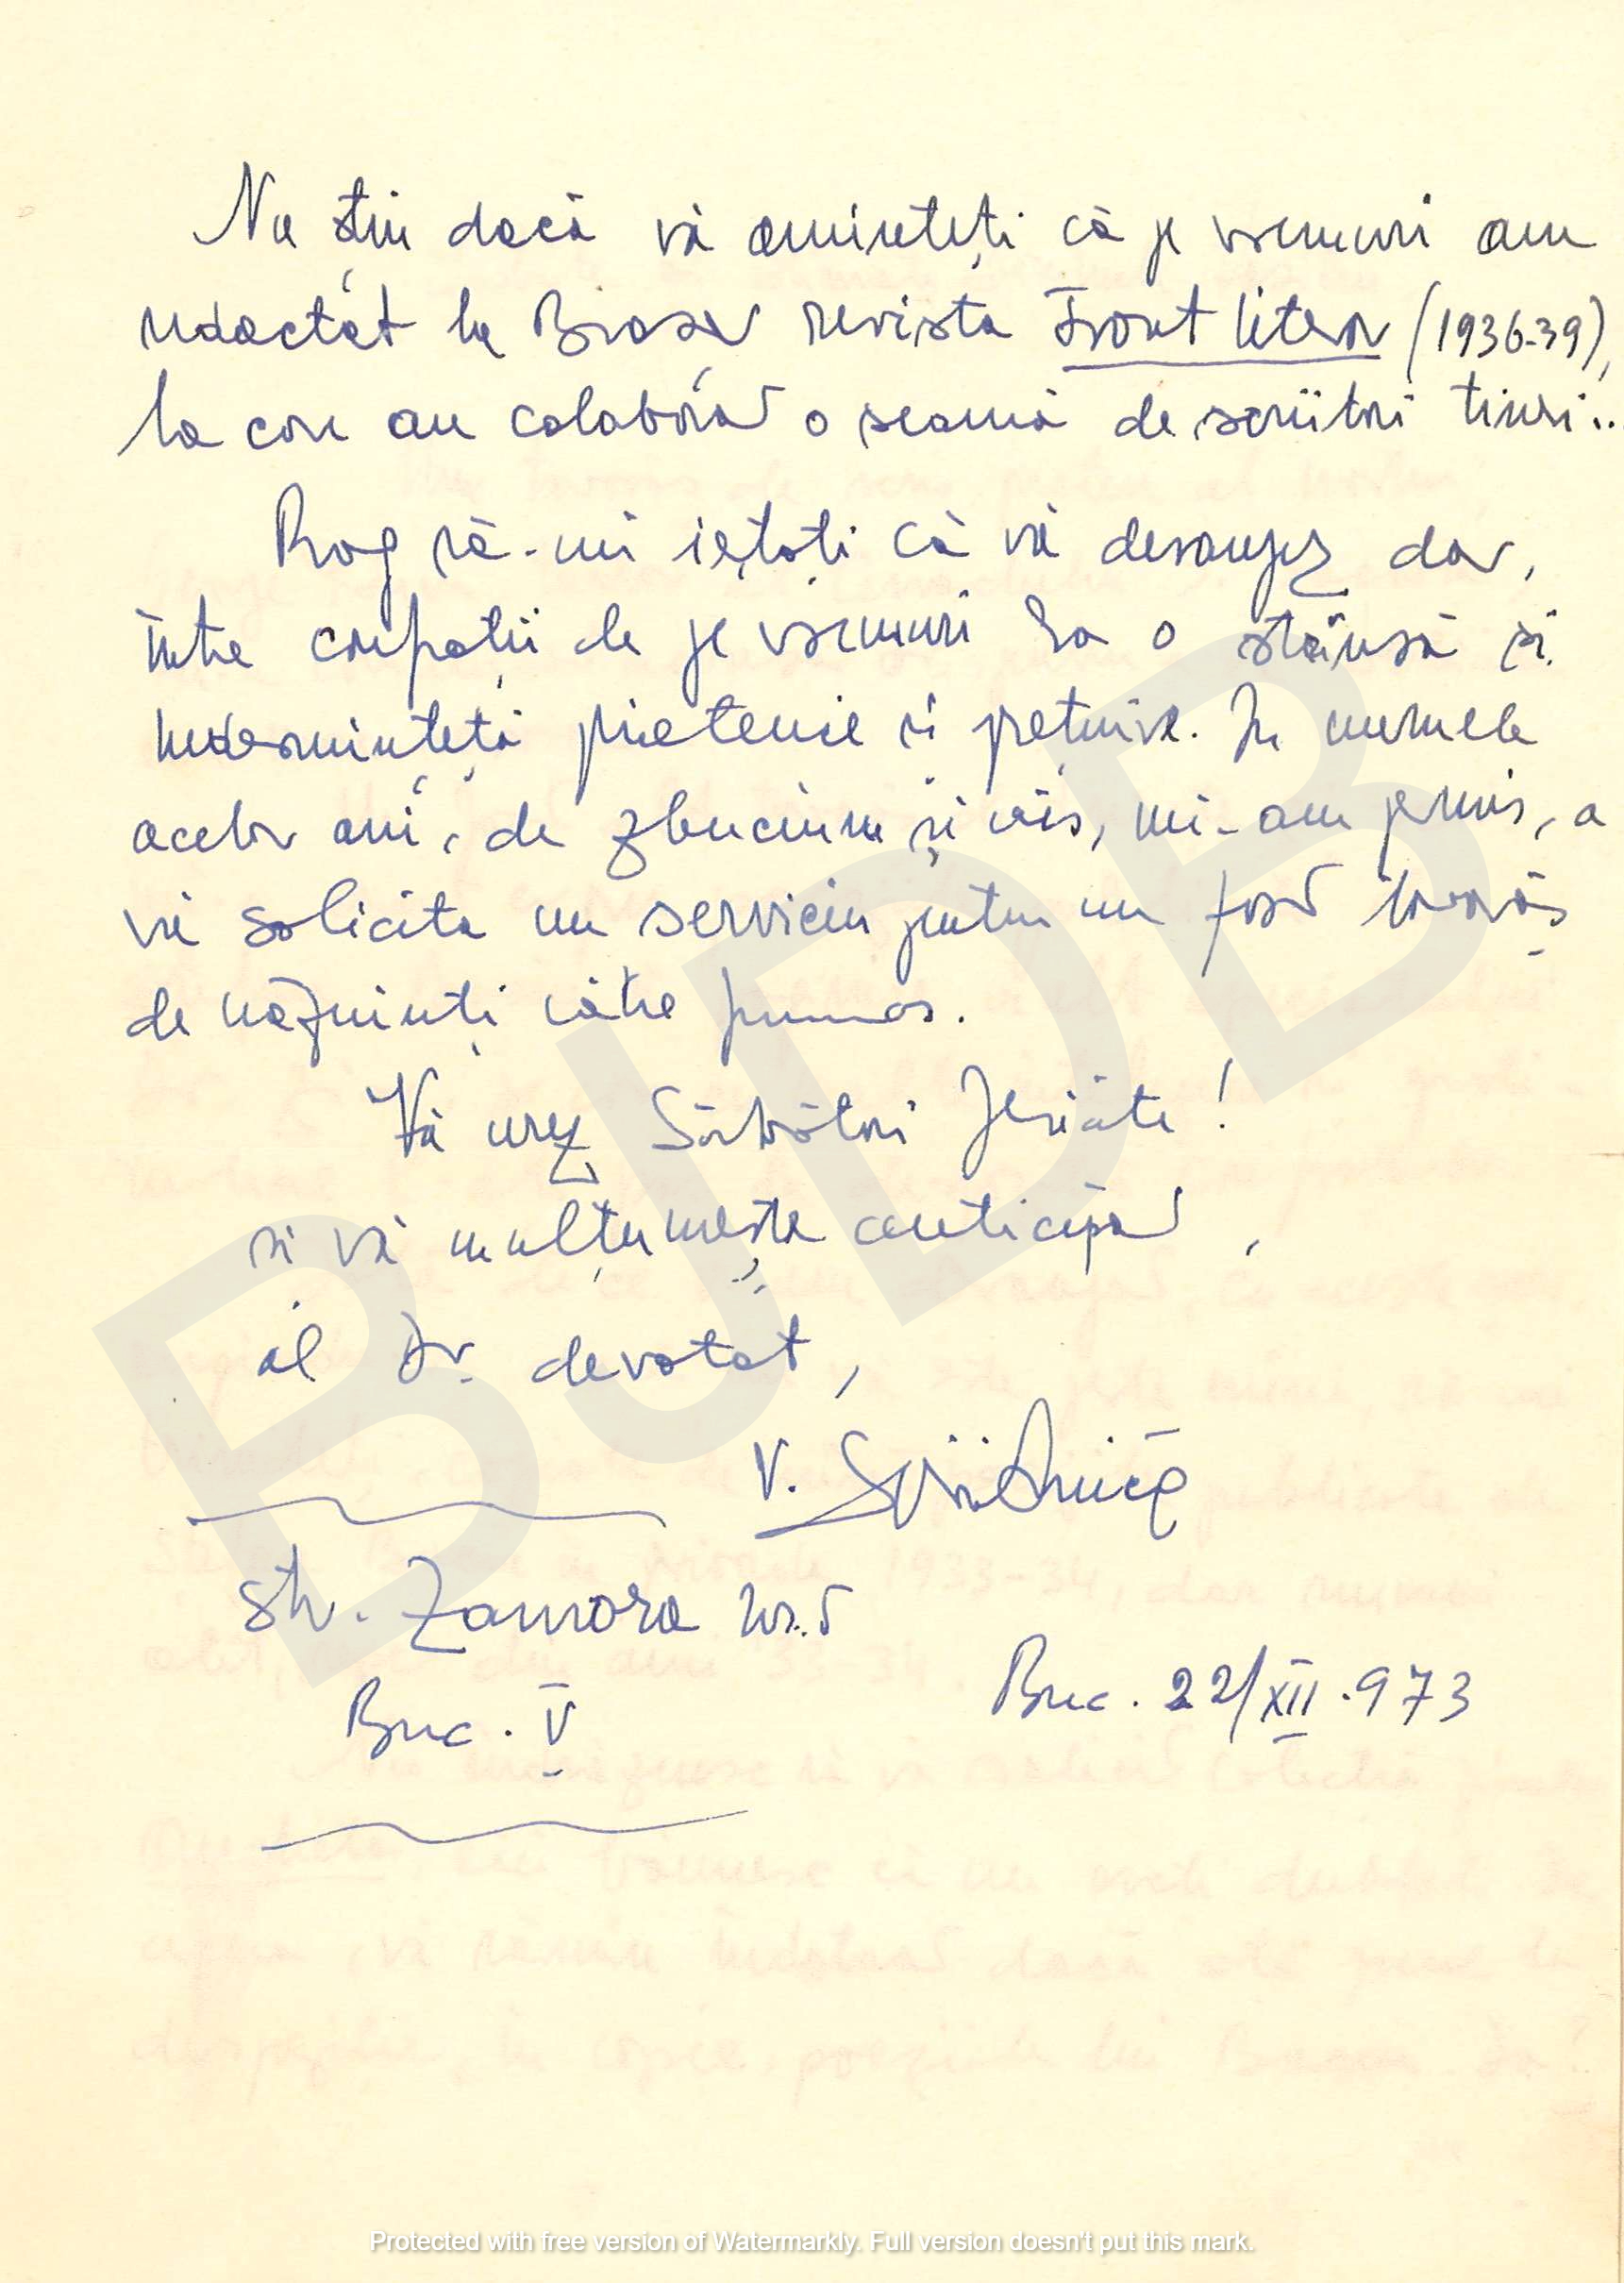 Nu știu dacă vă amintiți că pe vremuri am
redactat la Brașov revista Front literar (1936-39),
la care au colaborat o seamă de scriitori tineri..
Rog să-mi iertați că vă deranjez dar,
între confrații de pe vremuri era o strînsă și
nedesmințită prietenie și prețuire. In numele
acelor ani, de zbucium și vis, mi-am permis, a
vă solicita un serviciu pentru un fost tovarăș
de năzuinți către frumos.
Vă urez Sărbători Fericite!
și vă mulțumește anticipat,
al Dv. devotat,
V. Spiridonică
Str. Zamora nr. 5
Buc. V
Buc. 22/XII.973
BJDB
Protected with free version of Watermarkly. Full version doesn't put this mark.